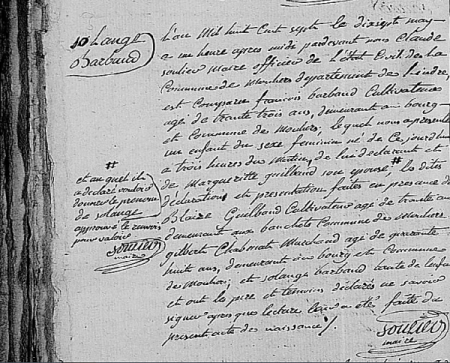 Solange
Barbaud
l'an Mil huit Cent sept le dixieme may
a une heure apres midi pardevant nous Claude
soulier Maire officier de l'Etat Civil de la
Commune de Mouhers departement de Lindre,
est Comparu francois barbaud Cultivateur
age de trante trois ans, demeurant a bourg
et Commune de Mouhers, lequel nous a presente
un enfant du sexe feminin né de Ce jourdhui
a trois heures du Matin de lui declarant et
de Margueritte guilbaud son epouse, # les dites
declarations et presentation faites en presance de
Blaize Guelbaud Cultivateur age de trante
demeurant aux banchets Commune de Mouhers
gilbert Chabenat Marchand age de quarante
huit ans, demeurant au bourg et Commune
de Mouhers; et solange barbaud tante de lenfant
et ont les pere et temoins declarés ne savoir
signer apres que lecture leur a été faite du
present acte de naissance /.
soulier
maire
#
et auquel il
a declaré vouloir
donner le prenom
de solange
approuvé le renvoi
pour valoir
soulier
maire